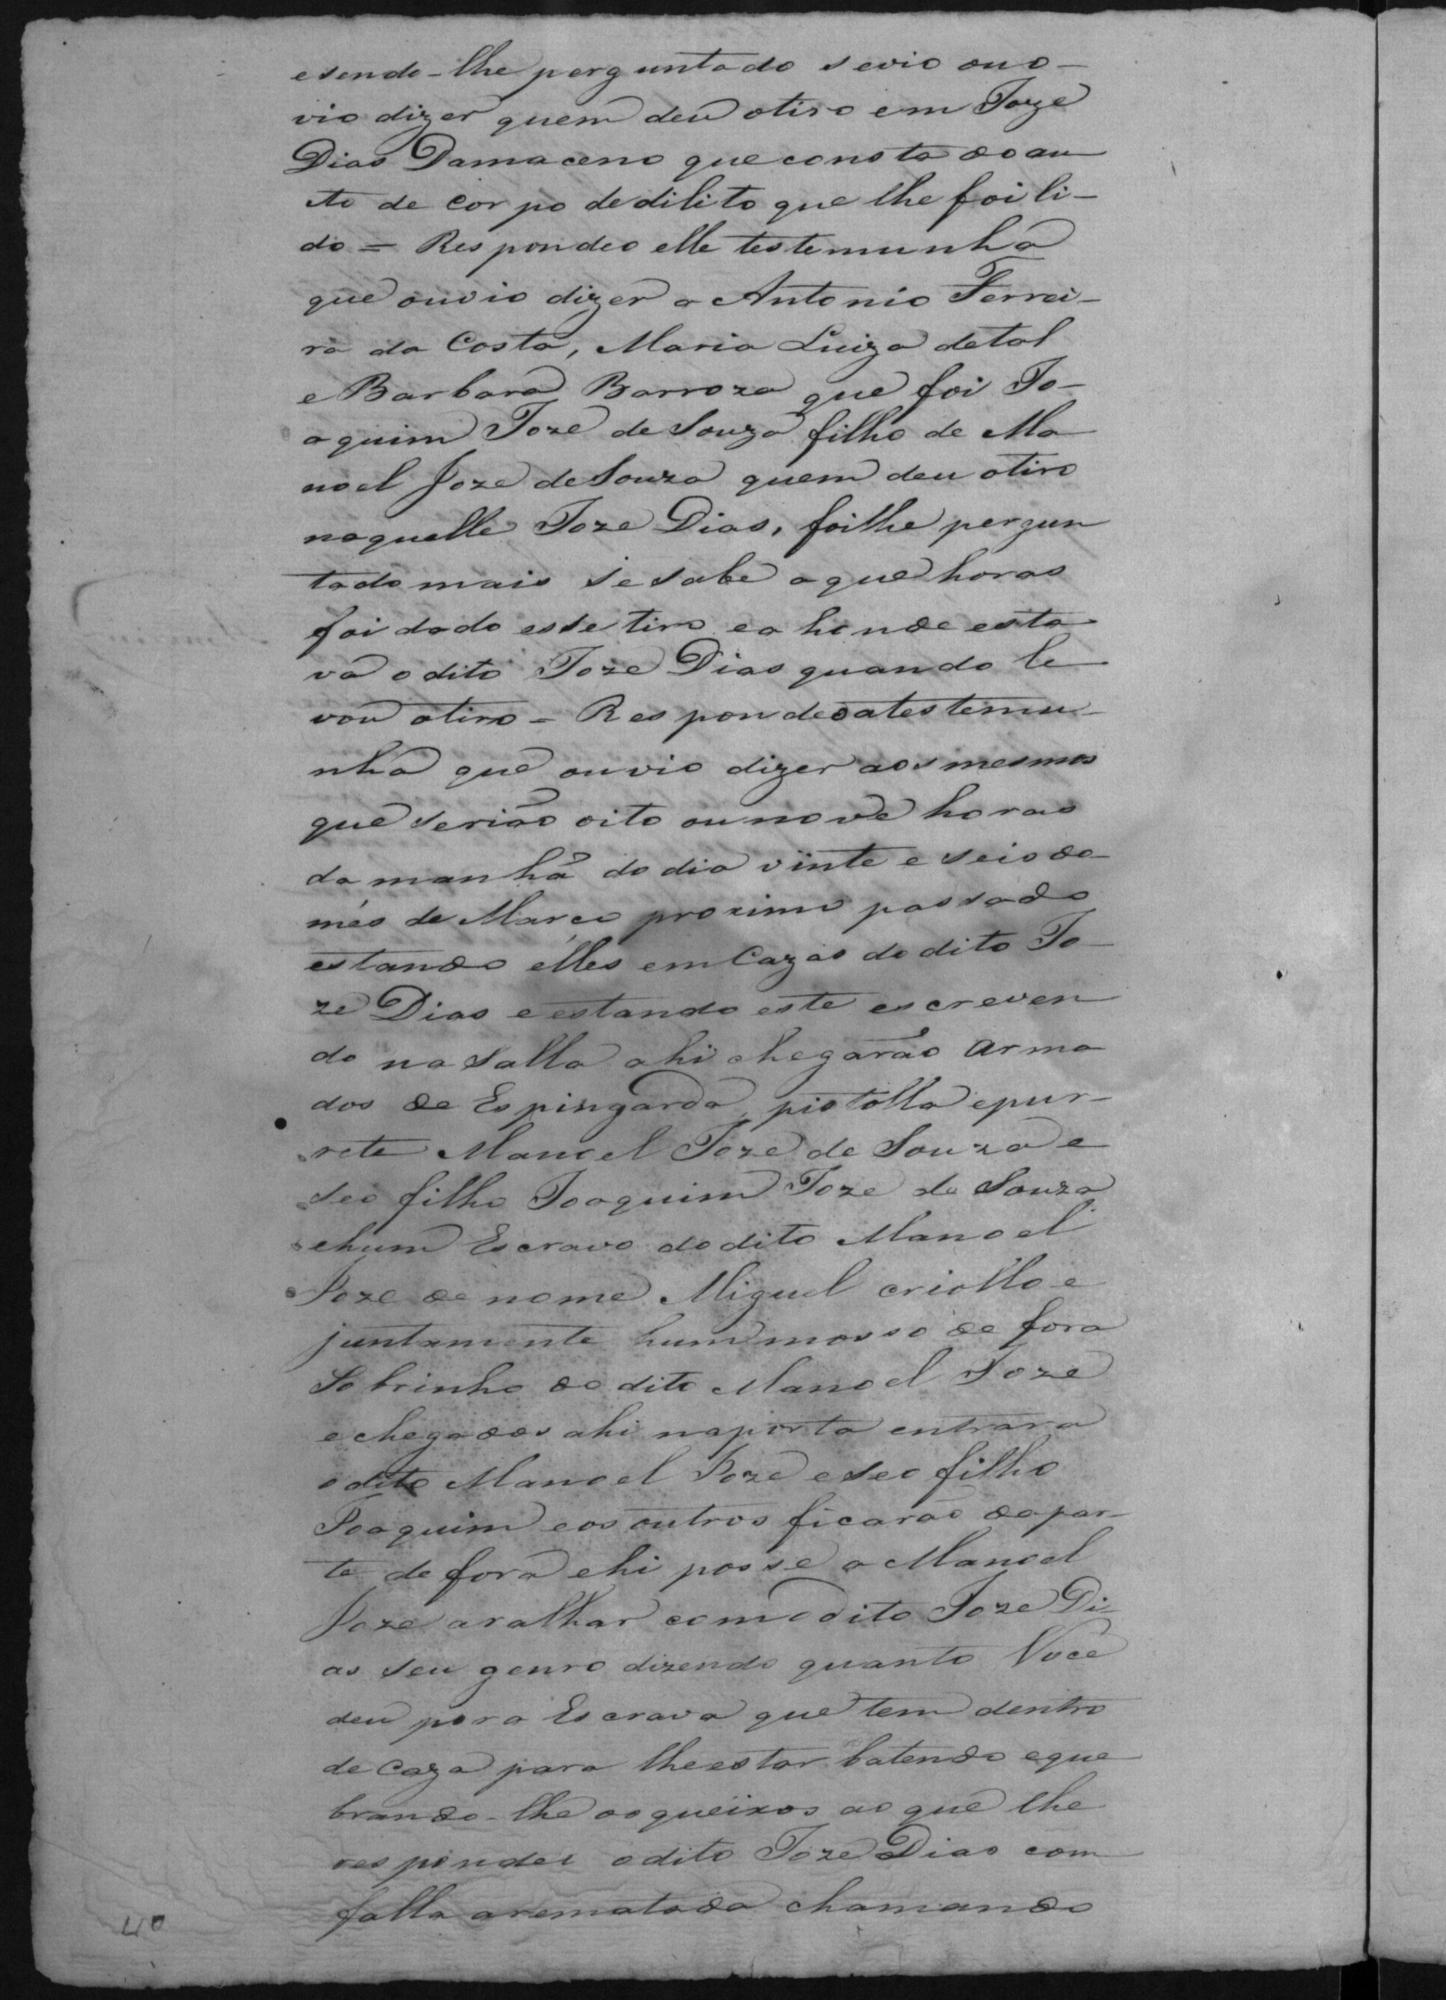 e sendo-lhe perguntado se vio ou o-
vio dizer quem deu o tiro em Joze
Dias Damaceno que consta do au
to de corpo de dilito que lhe foi li-
do = Respondeo elle testemunha
que ouvio dizer a Antonio Ferrei-
ra da Costa, Maria Luiza de tal
e Barbara Barroza que foi Jo-
aquim Joze de Souza filho de Ma
noel Joze de Souza quem deu o tiro
naquelle Joze Dias, foi lhe pergun
tado mais se sabe a que horas
foi dado esse tiro e a honde esta
va o dito Joze Dias quando le
vou o tiro = Respondeo a testemu-
nha que ouvio dizer aos mesmos
que serião oito ou nove horas
da manhã do dia vinte e seis do
mes de Março proximo passado
estando elles em Cazas do dito Jo-
zé Dias e estando este escreven
do na salla ahi chegarão arma
dos de Espingarda, pistolla e pur-
rete Manoel Joze de Souza e
seo filho Joaquim Joze de Souza
e hum Escravo do dito Manoel
Joze de nome Miguel criollo e
juntamente hum mosso de fora
Sobrinho do dito Manoel Joze
e chegados ahi na porta entrara
o dito Manoel Joze e seo filho
Joaquim e os outros ficarão da par-
te de fora e hi pos se a Manoel
Joze a ralhar com o dito Joze Di-
as seu genro dizendo quanto Voce
deu por a Escrava que tem dentro
de caza para lhe estar batendo e que
brando-lhe os queixos ao que lhe
respondeo o dito Joze Dias com
falla arematada chamando
40